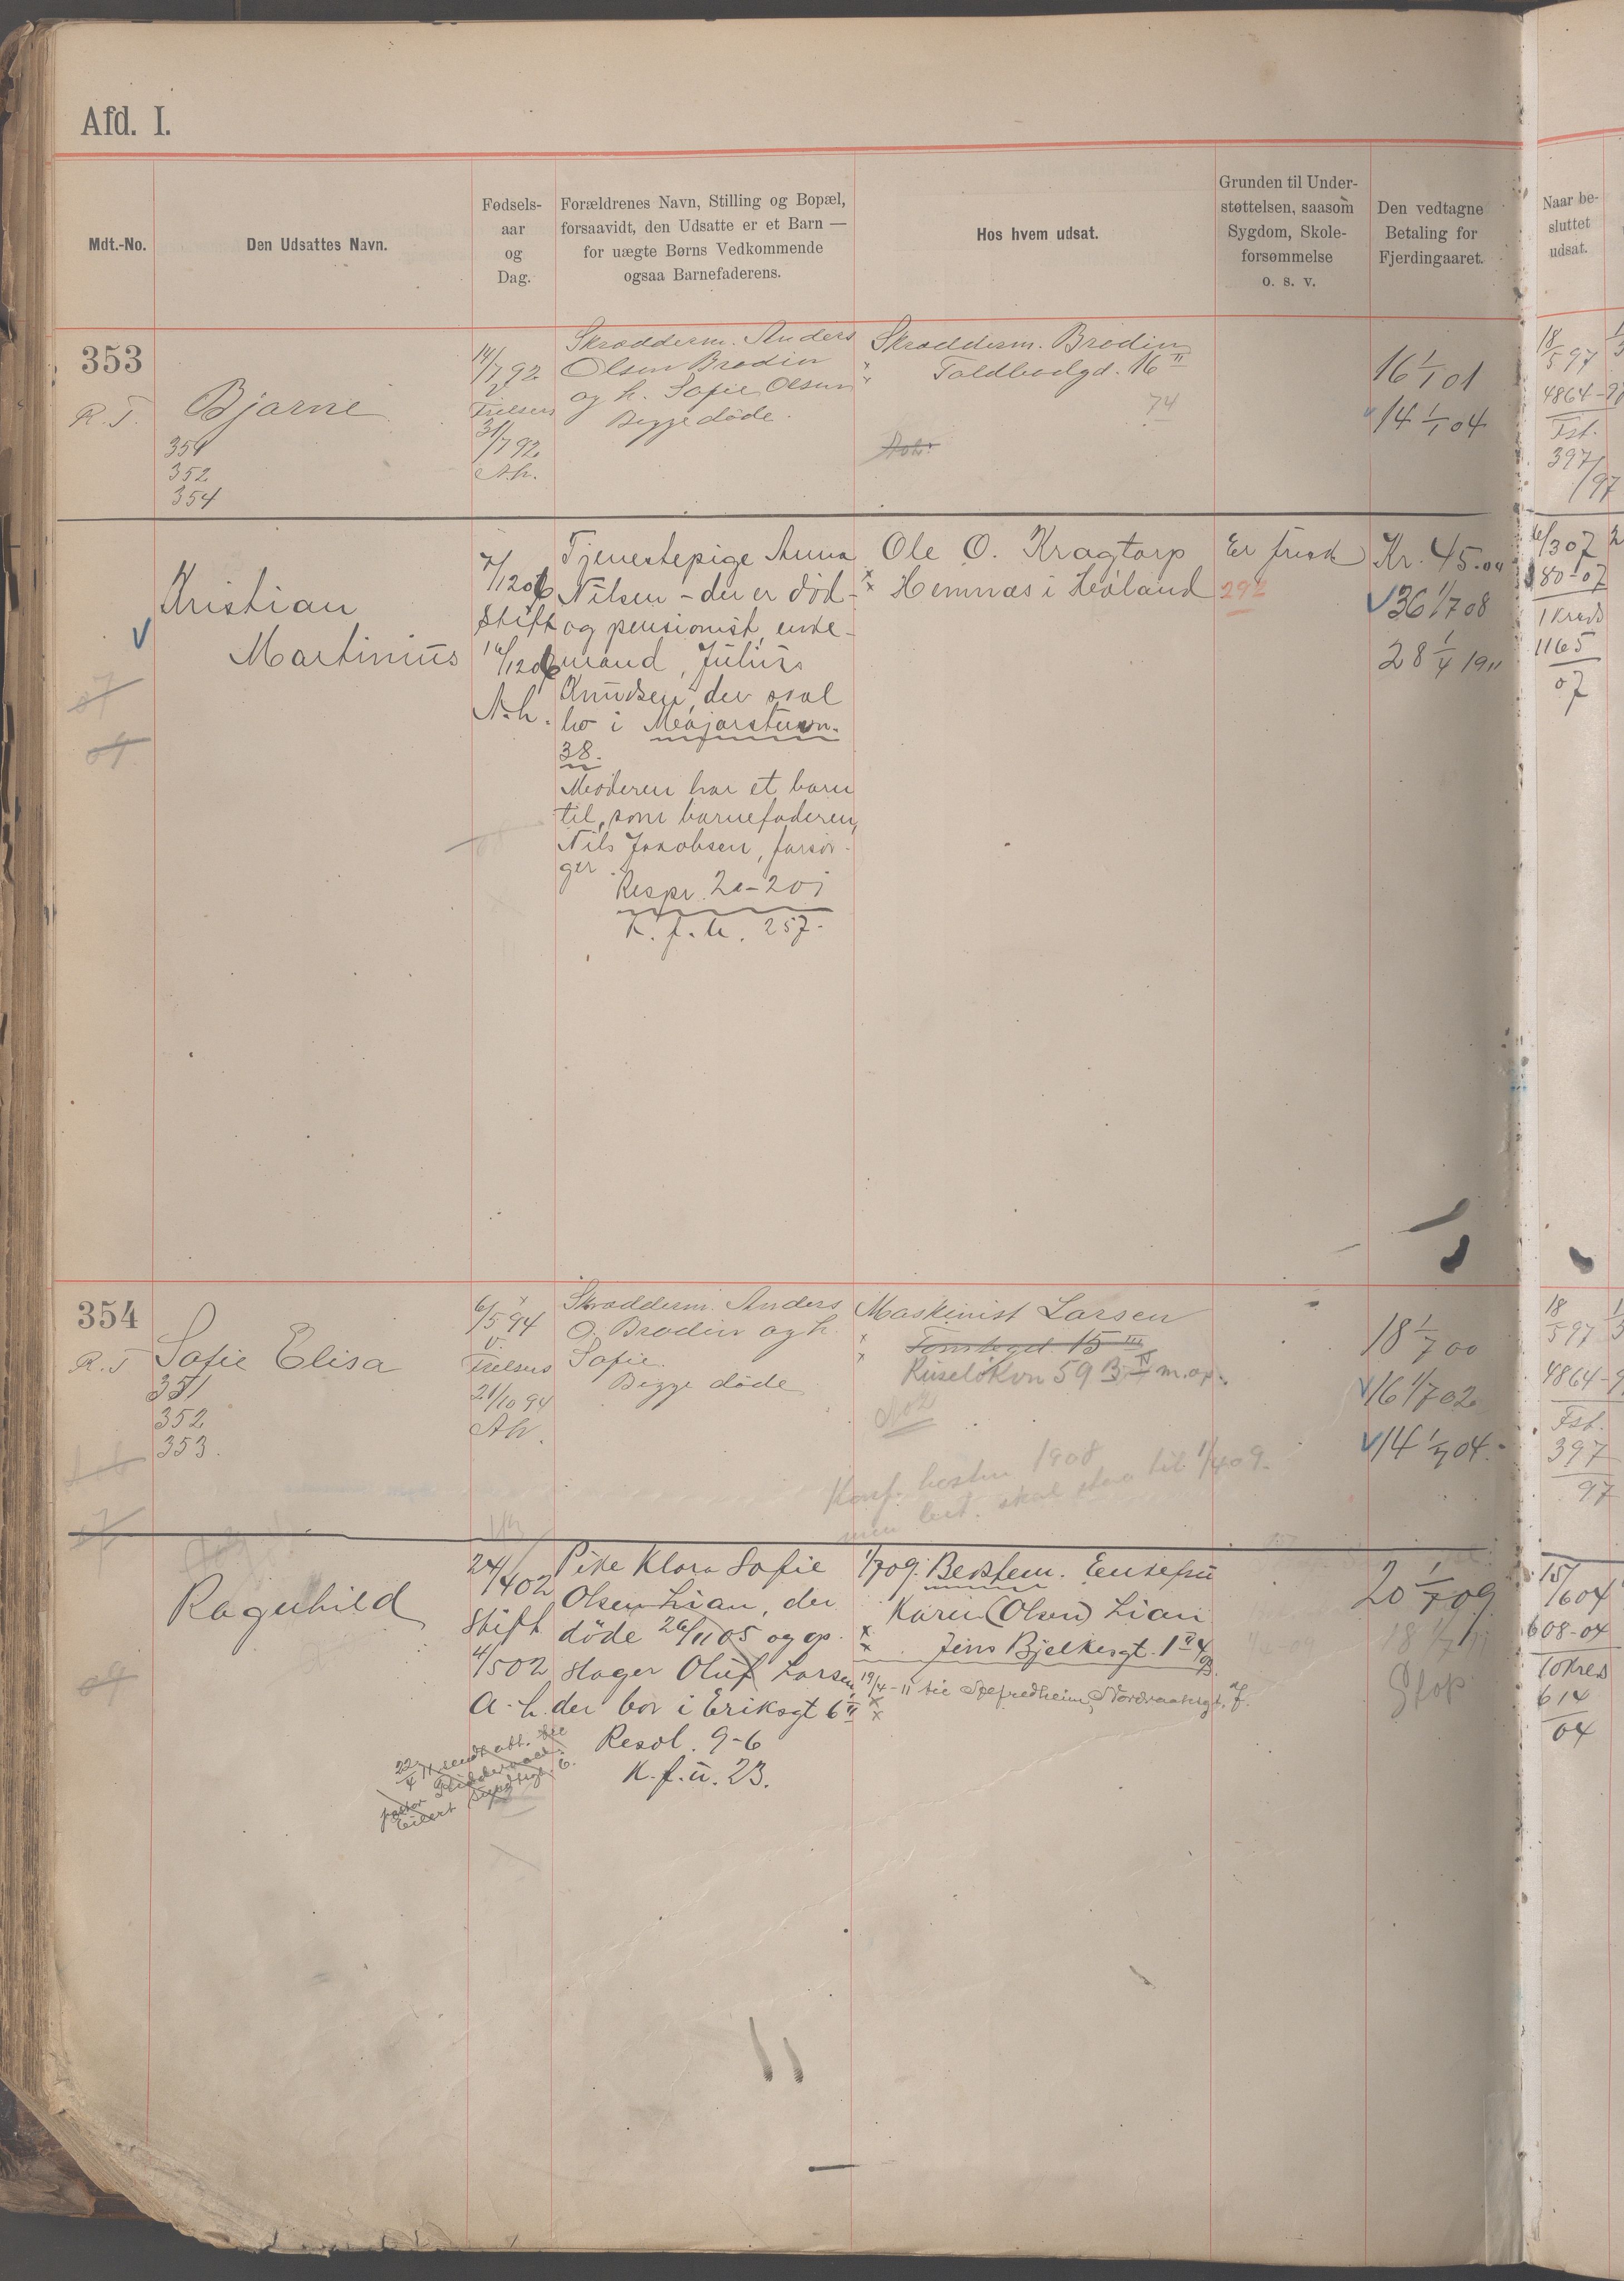 Afd. I.
Mdt.-No.
Den Udsattes Navn.
Fødsels-
aar
og
Dag.
Forældrenes Navn, Stilling og Bopæl,
forsaavidt, den Udsatte er et Barn —
for uægte Børns Vedkommende
ogsaa Barnefaderens.
Hos hvem udsat.
Grunden til Under-
støttelsen, saasom
Sygdom, Skole-
forsømmelse
o. s. v.
Den vedtagne
Betaling for
Fjerdingaaret.
Naar be-
sluttet
udsat.
353
R. T.
Bjarne
351
352
354
14/7 92
Frelsers
31/7 92
A.h.
Skrædderm. Anders
Olsen Brodin
og h. Sofie Olsen
Begge døde.
Skrædderm. Brodin
Toldbodgd. 16 II
74
16 1/1 01
14 1/1 04
18/5 97
4864-97
Fst.
397/97
Kristian
Martinius
07
09
7/12 06
Stift
16/12 06
A.h.
Tjenestepige Anna
Nilsen - der er død -
og pensionist, enke-
mand, Julius
Knudsen, der skal
bo i Meajorstuvn.
38.
Moderen har et barn
til, som barnefaderen,
Nils Jakobsen, forsør-
ger.
Respr. 20-20j
K. f. u. 257.
Ole O. Kragtorp
Hemnæs i Høland
Er frisk
292
Kr. 45.00
36 1/7 08
28 1/4 1911
6/3 07
180-07
1 Kreds
1165
07
354
R. T
Sofie Elisa
351
352
353.
6/5 94
v.
Frelsers
21/10 94
A.h.
Skrædderm. Anders
O. Brodin og h.
Sofie.
Begge døde
Maskinist Larsen
Tomtegd 15 III
Ruseløkvn 59 B IV m.op.
Konf. høsten 1908
men bet. skal staa til 1/4 09.
18 1/7 00
16 1/7 02
14 1/7 04.
18/5 97
4864-9
Fst.
397
97
Ragnhild
09
24/4 02
Stift
4/5 02
A.h.
Pike Klara Sofie
Olsen Lian, der
døde 26/11 05 og op.
slager Oluf Larsen
der bor i Eriksgt 6 II
Resol. 9-6
K. f. u. 23.
1/7 09. Bestem. Enkefru
Karen (Olsen) Lian
Jens Bjelkesgt. 1
20 1/7 09
18 1/7 11
Stop
15/6 04
608-04
10 Kreds
614
04